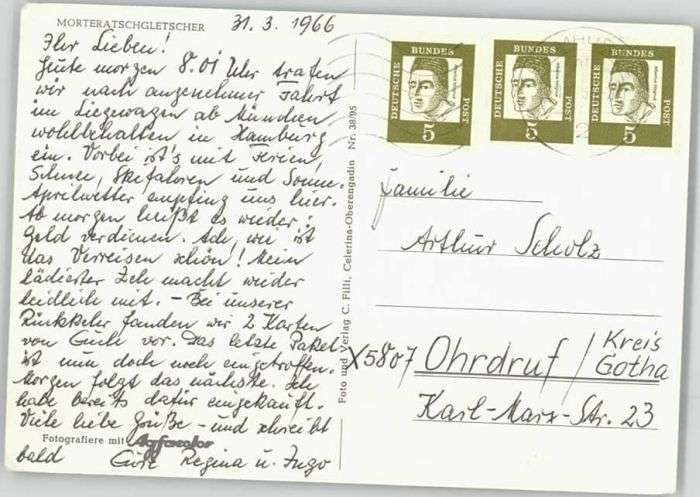 MORTERATSCHGLETSCHER
31.3.1966
Ihr Lieben!
Heute morgen 8.01 Uhr trafen
wir nach angenehmer Fahrt
im Liegewagen ab München
wohlbehalten in Hamburg
ein. Vorbei ist's mit Ferien,
Schnee, Skifahren und Sonne.
Aprilwetter empfing uns hier.
Ab morgen heißt es wieder:
Geld verdienen. Ach, wie ist
das Verreisen schön! Mein
lädierter Zeh macht wieder
leidlich mit. - Bei unserer
Rückkehr fanden wir 2 Karten
von Euch vor. Das letzte Paket
ist nun doch noch eingetroffen.
Morgen folgt das nächste. Ich
habe bereits dafür eingekauft.
Viele liebe Grüße - und schreibt
Fotografiere mit Agfacolor
bald Eure Regina u. Ingo
Foto und Verlag C. Filli, Celerina-Oberengadin Nr. 38/95
DEUTSCHE BUNDES POST 5
DEUTSCHE BUNDES POST 5
DEUTSCHE BUNDES POST 5
Familie
Arthur Scholz
X5807 Ohrdruf / Kreis Gotha
Karl-Marx-Str. 23